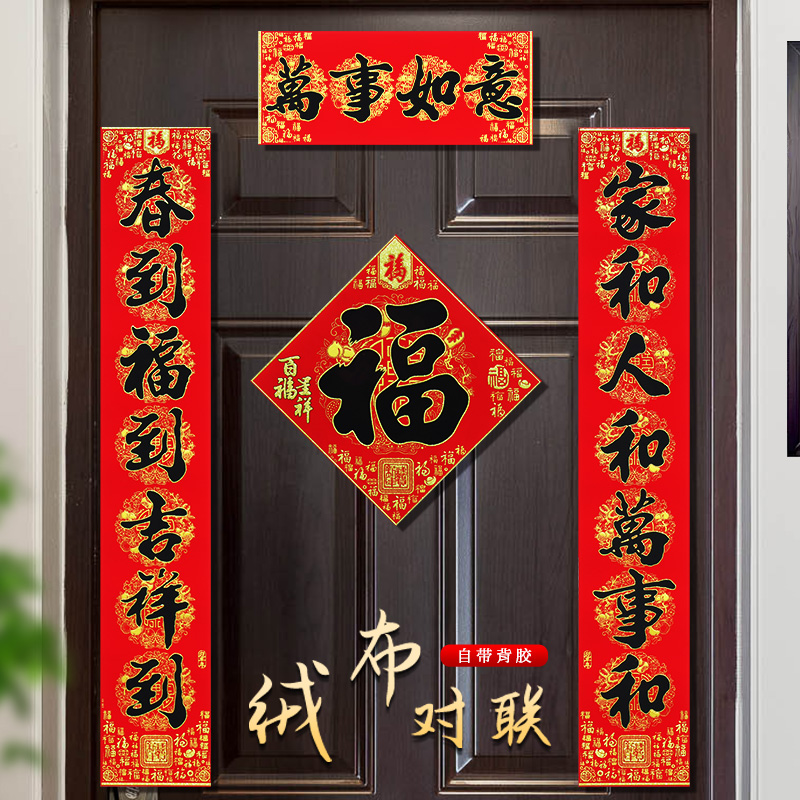 萬事如意
家和人和萬事和
春到福到吉祥到
福
福
福
福
百福
呈祥
布
绒 对联
自带背胶